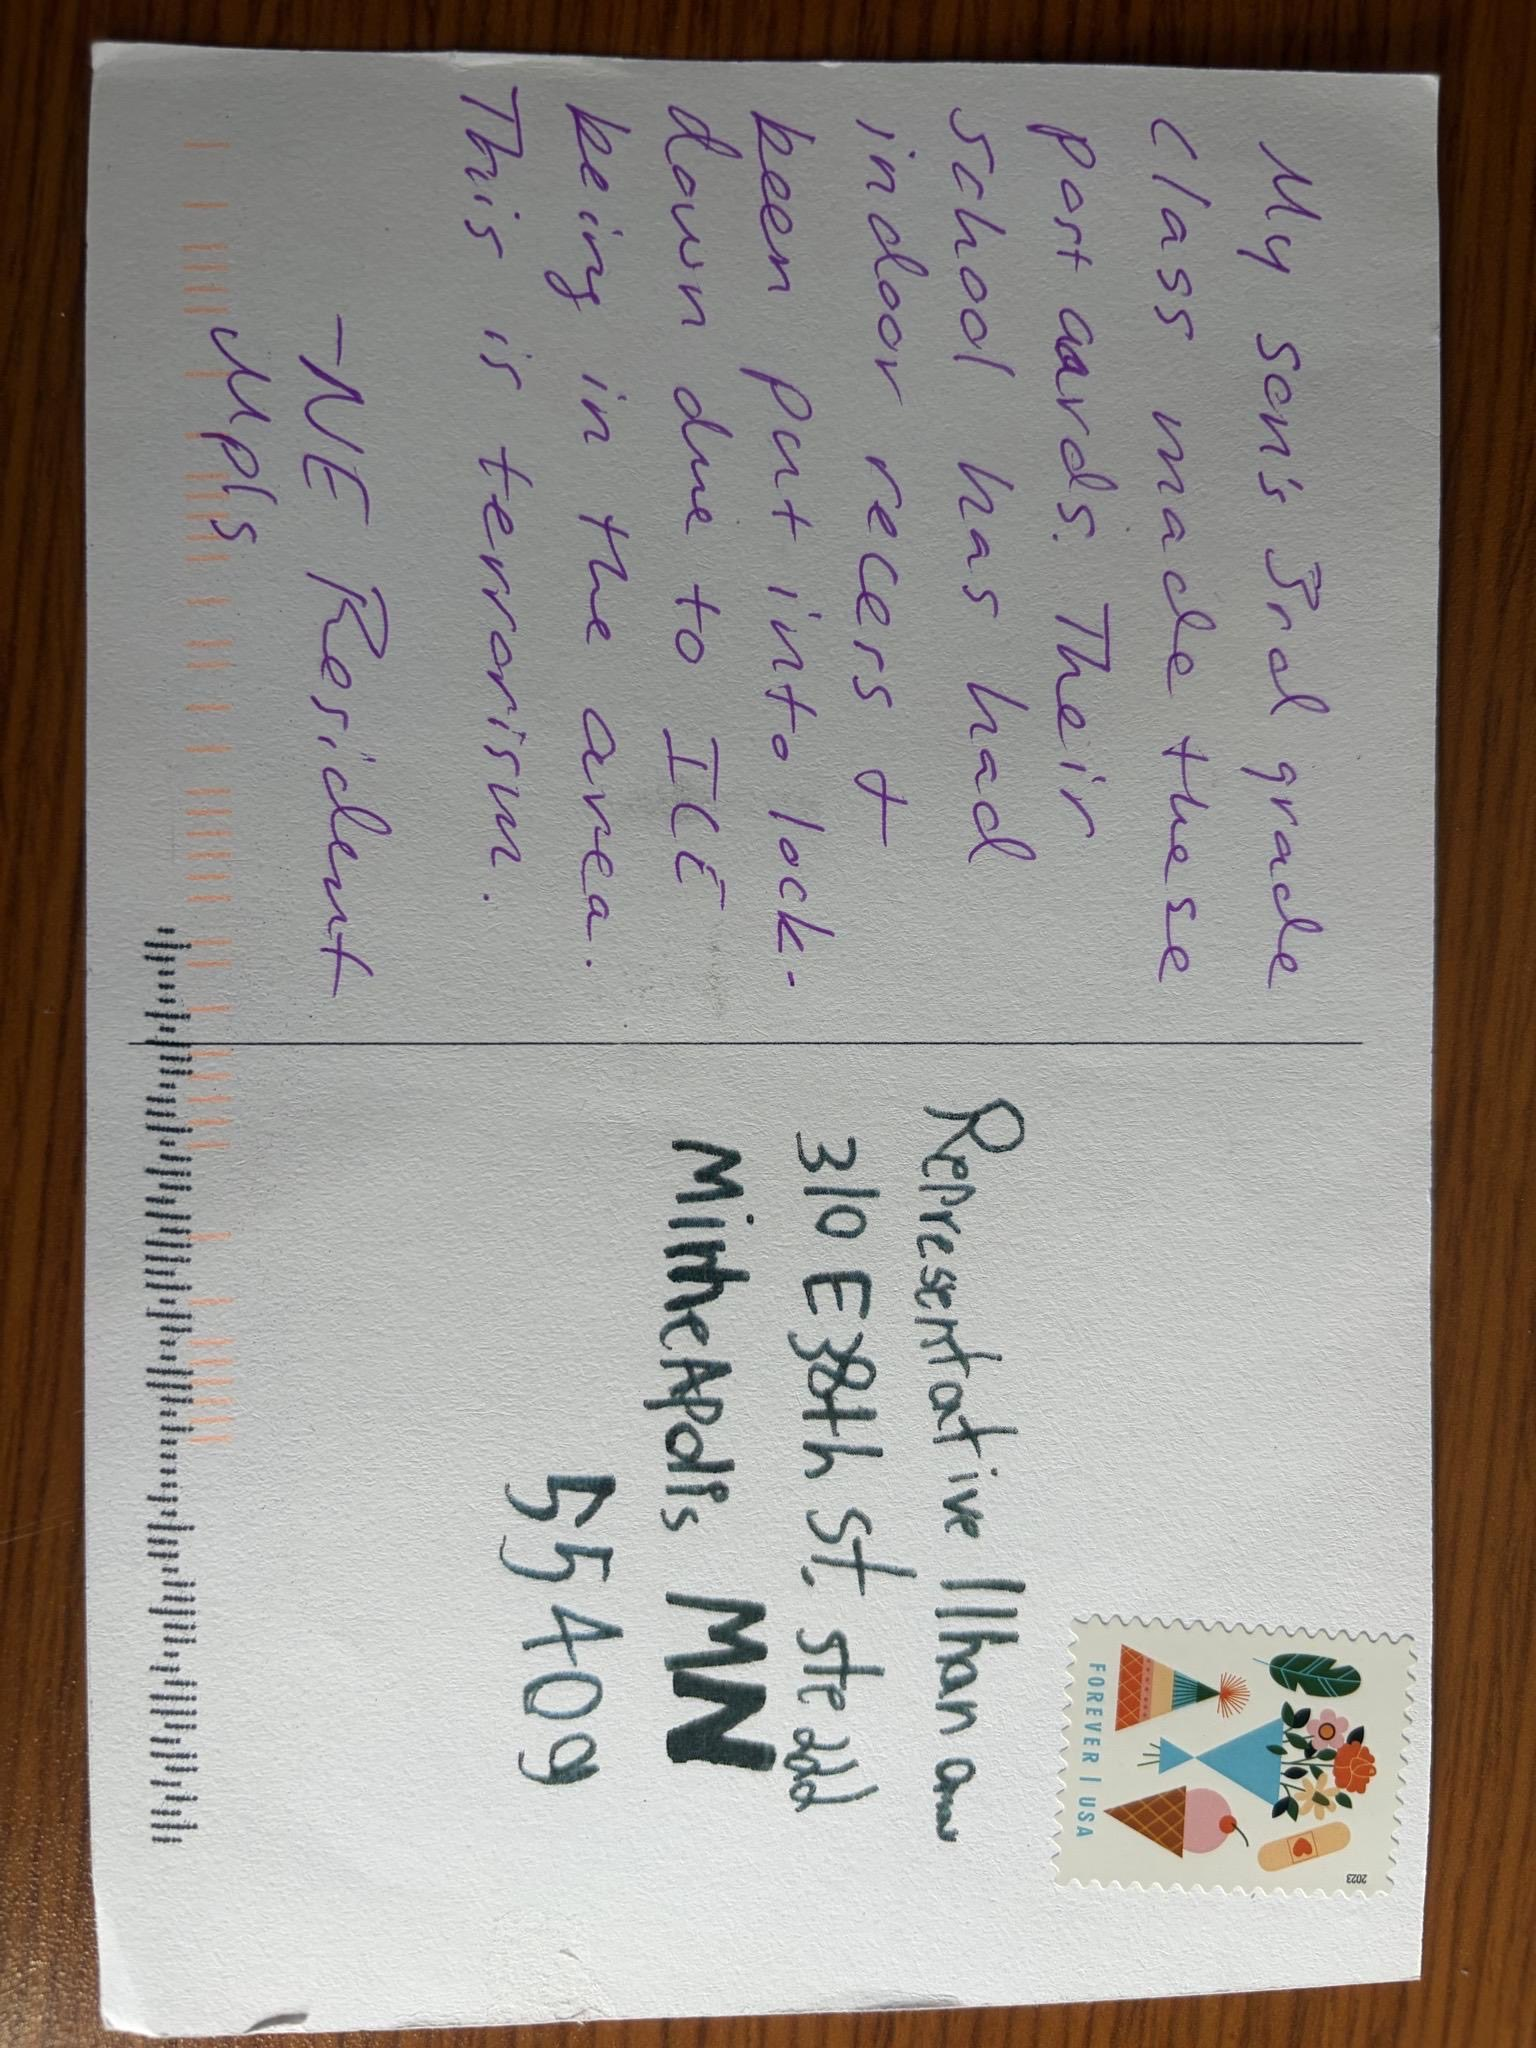 My son's 3rd grade
class made these
postcards. Their
school has had
indoor recess +
been put into lock-
down due to ICE
being in the area.
This is terrorism.
-NE Resident
Mpls
FOREVER | USA
2023
Representative Ilhan
310 E 38th St. ste
Minneapolis MN
55409